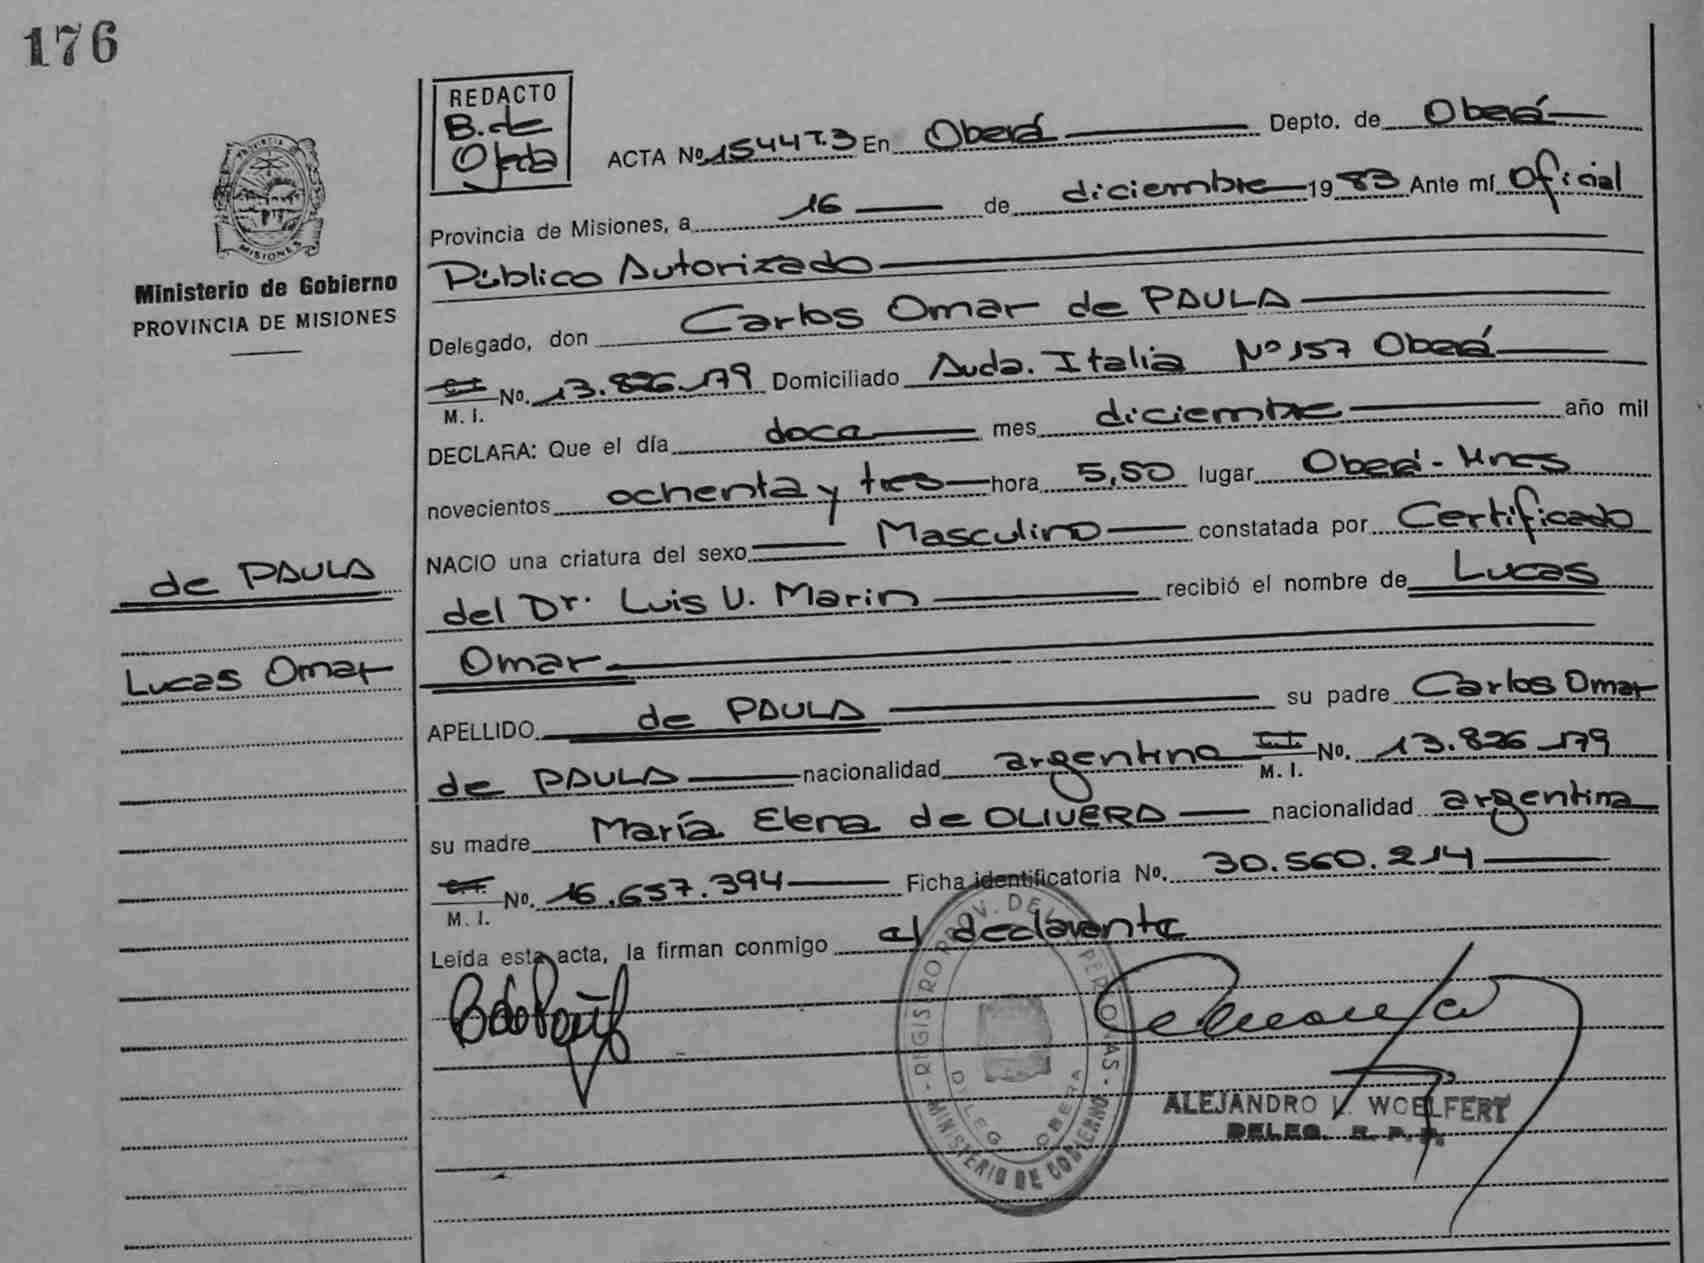 176
REDACTO
B. de
Ojeda
ACTA No 1544T.3 En Oberá Depto. de Oberá
Provincia de Misiones, a 16 de diciembre 1983 Ante mí Oficial
Público Autorizado
MISIONES
Ministerio de Gobierno
PROVINCIA DE MISIONES
Delegado, don Carlos Omar de PAULA
M. I. No. 13.826.179 Domiciliado Avda. Italia No 157 Oberá
DECLARA: Que el día doce mes diciembre año mil
novecientos ochenta y tres hora 5,50 lugar Oberá - Mnes
NACIO una criatura del sexo Masculino constatada por Certificado
de PAULA
del Dr. Luis V. Marin recibió el nombre de Lucas
Lucas Omar
Omar
APELLIDO de PAULA su padre Carlos Omar
de PAULA nacionalidad argentino M. I. No. 13.826.179
su madre María Elena de OLIVERA nacionalidad argentina
M. I. No. 16.657.394 Ficha identificatoria No. 30.560.214
Leída esta acta, la firman conmigo el declarante
REGISTRO PROV. DE PERSONAS - MINISTERIO DE GOBIERNO
DELEG. OBERA
ALEJANDRO L. WOELFERT
DELEG. R. P. P.